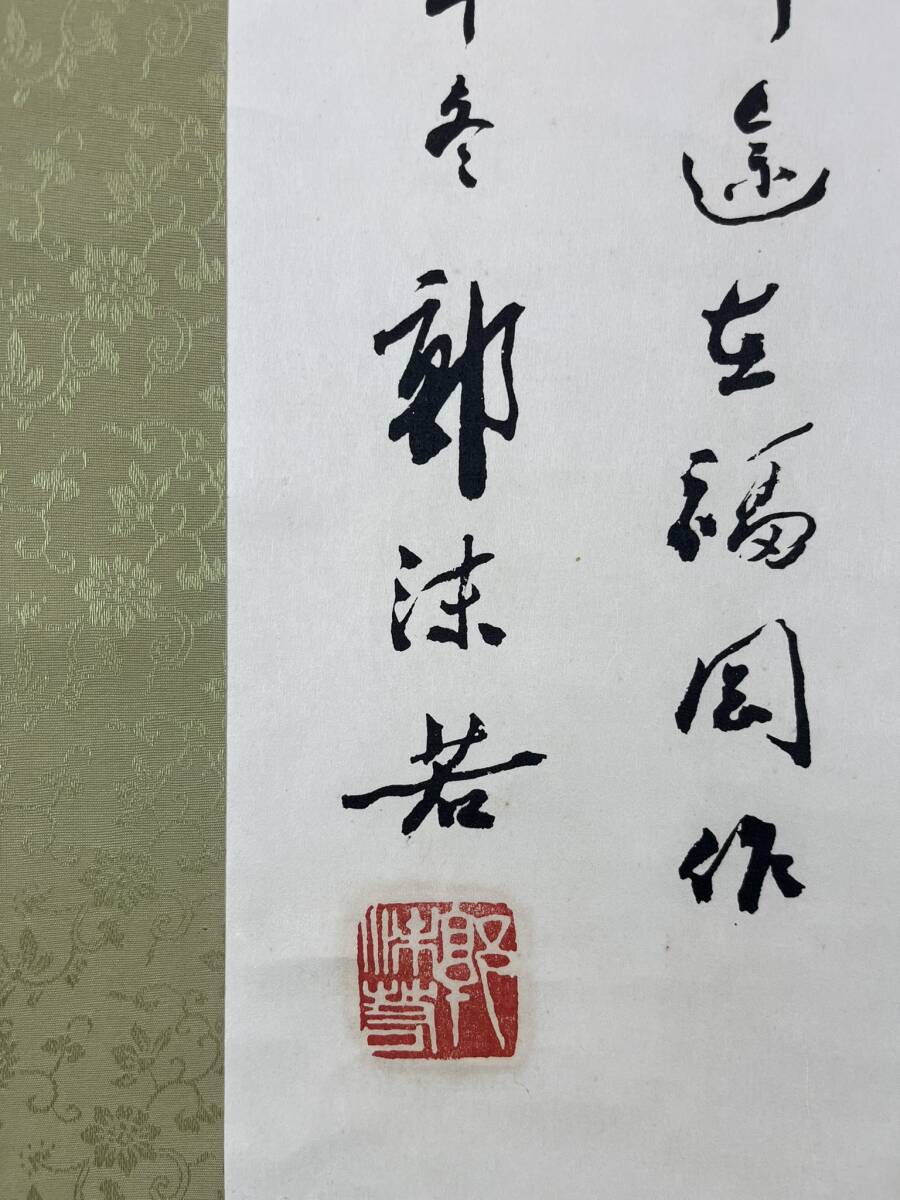 途在福冈作
年冬 郭沫若
郭沫若